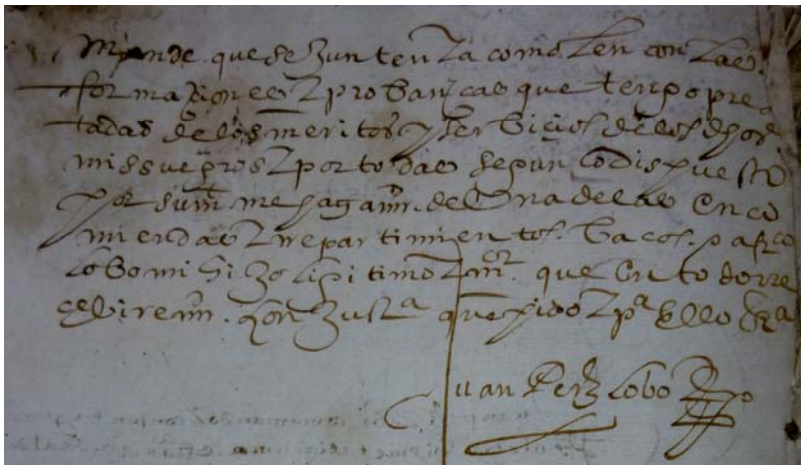 mande que se Junten Za como len con las
formaziones Z probanças que tengo pre
tadas de los meritos y serbiçios de los dhos
mis suegros Z por todas segun lo dispuesto
por su mt me haga mrd. de Una de las enco
miendas Z rrepartimientos. bacos. p a
lobo mi hiJo ligitimo Z mor que En todo rre
çebire mrd. con Justa que pido Z pa Ello &a
Juan Perz Lobo